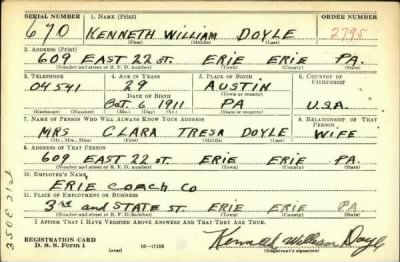 SERIAL NUMBER 1. NAME (Print) ORDER NUMBER
670 KENNETH WILLIAM DOYLE 2795
(First) (Middle) (Last)
2. ADDRESS (Print)
609 EAST 22 ST. ERIE ERIE PA.
(Number and street or R. F. D. number) (Town) (County) (State)
3. TELEPHONE 4. AGE IN YEARS 5. PLACE OF BIRTH 6. COUNTRY OF CITIZENSHIP
04541 29 AUSTIN
DATE OF BIRTH (Town or county)
Oct. 6 1911 PA U.S.A.
(Exchange) (Number) (Mo.) (Day) (Yr.) (State or country)
7. NAME OF PERSON WHO WILL ALWAYS KNOW YOUR ADDRESS 8. RELATIONSHIP OF THAT PERSON
MRS CLARA TRESA DOYLE WIFE
(Mr., Mrs., Miss) (First) (Middle) (Last)
9. ADDRESS OF THAT PERSON
609 EAST 22 ST. ERIE ERIE PA.
(Number and street or R. F. D. number) (Town) (County) (State)
10. EMPLOYER'S NAME
ERIE COACH CO
11. PLACE OF EMPLOYMENT OR BUSINESS
3rd and STATE ST. ERIE ERIE PA
(Number and street or R. F. D. number) (Town) (County) (State)
I AFFIRM THAT I HAVE VERIFIED ABOVE ANSWERS AND THAT THEY ARE TRUE.
REGISTRATION CARD
D. S. S. Form 1 (over) 16—17105 Kenneth William Doyle
(Registrant's signature)